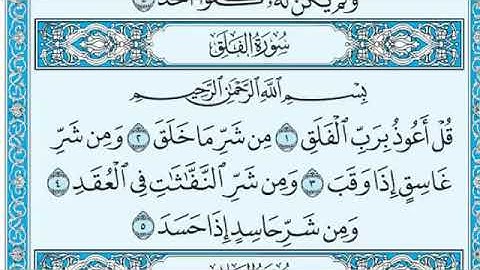 وَلَمْ يَكُن لَّهُۥ كُفُوًا أَحَدٌۢ
سُورَةُ الفَلَقِ
بِسْمِ ٱللَّهِ ٱلرَّحْمَٰنِ ٱلرَّحِيمِ
قُلْ أَعُوذُ بِرَبِّ ٱلْفَلَقِ ١ مِن شَرِّ مَا خَلَقَ ٢ وَمِن شَرِّ
غَاسِقٍ إِذَا وَقَبَ ٣ وَمِن شَرِّ ٱلنَّفَّٰثَٰتِ فِى ٱلْعُقَدِ ٤
وَمِن شَرِّ حَاسِدٍ إِذَا حَسَدَ ٥